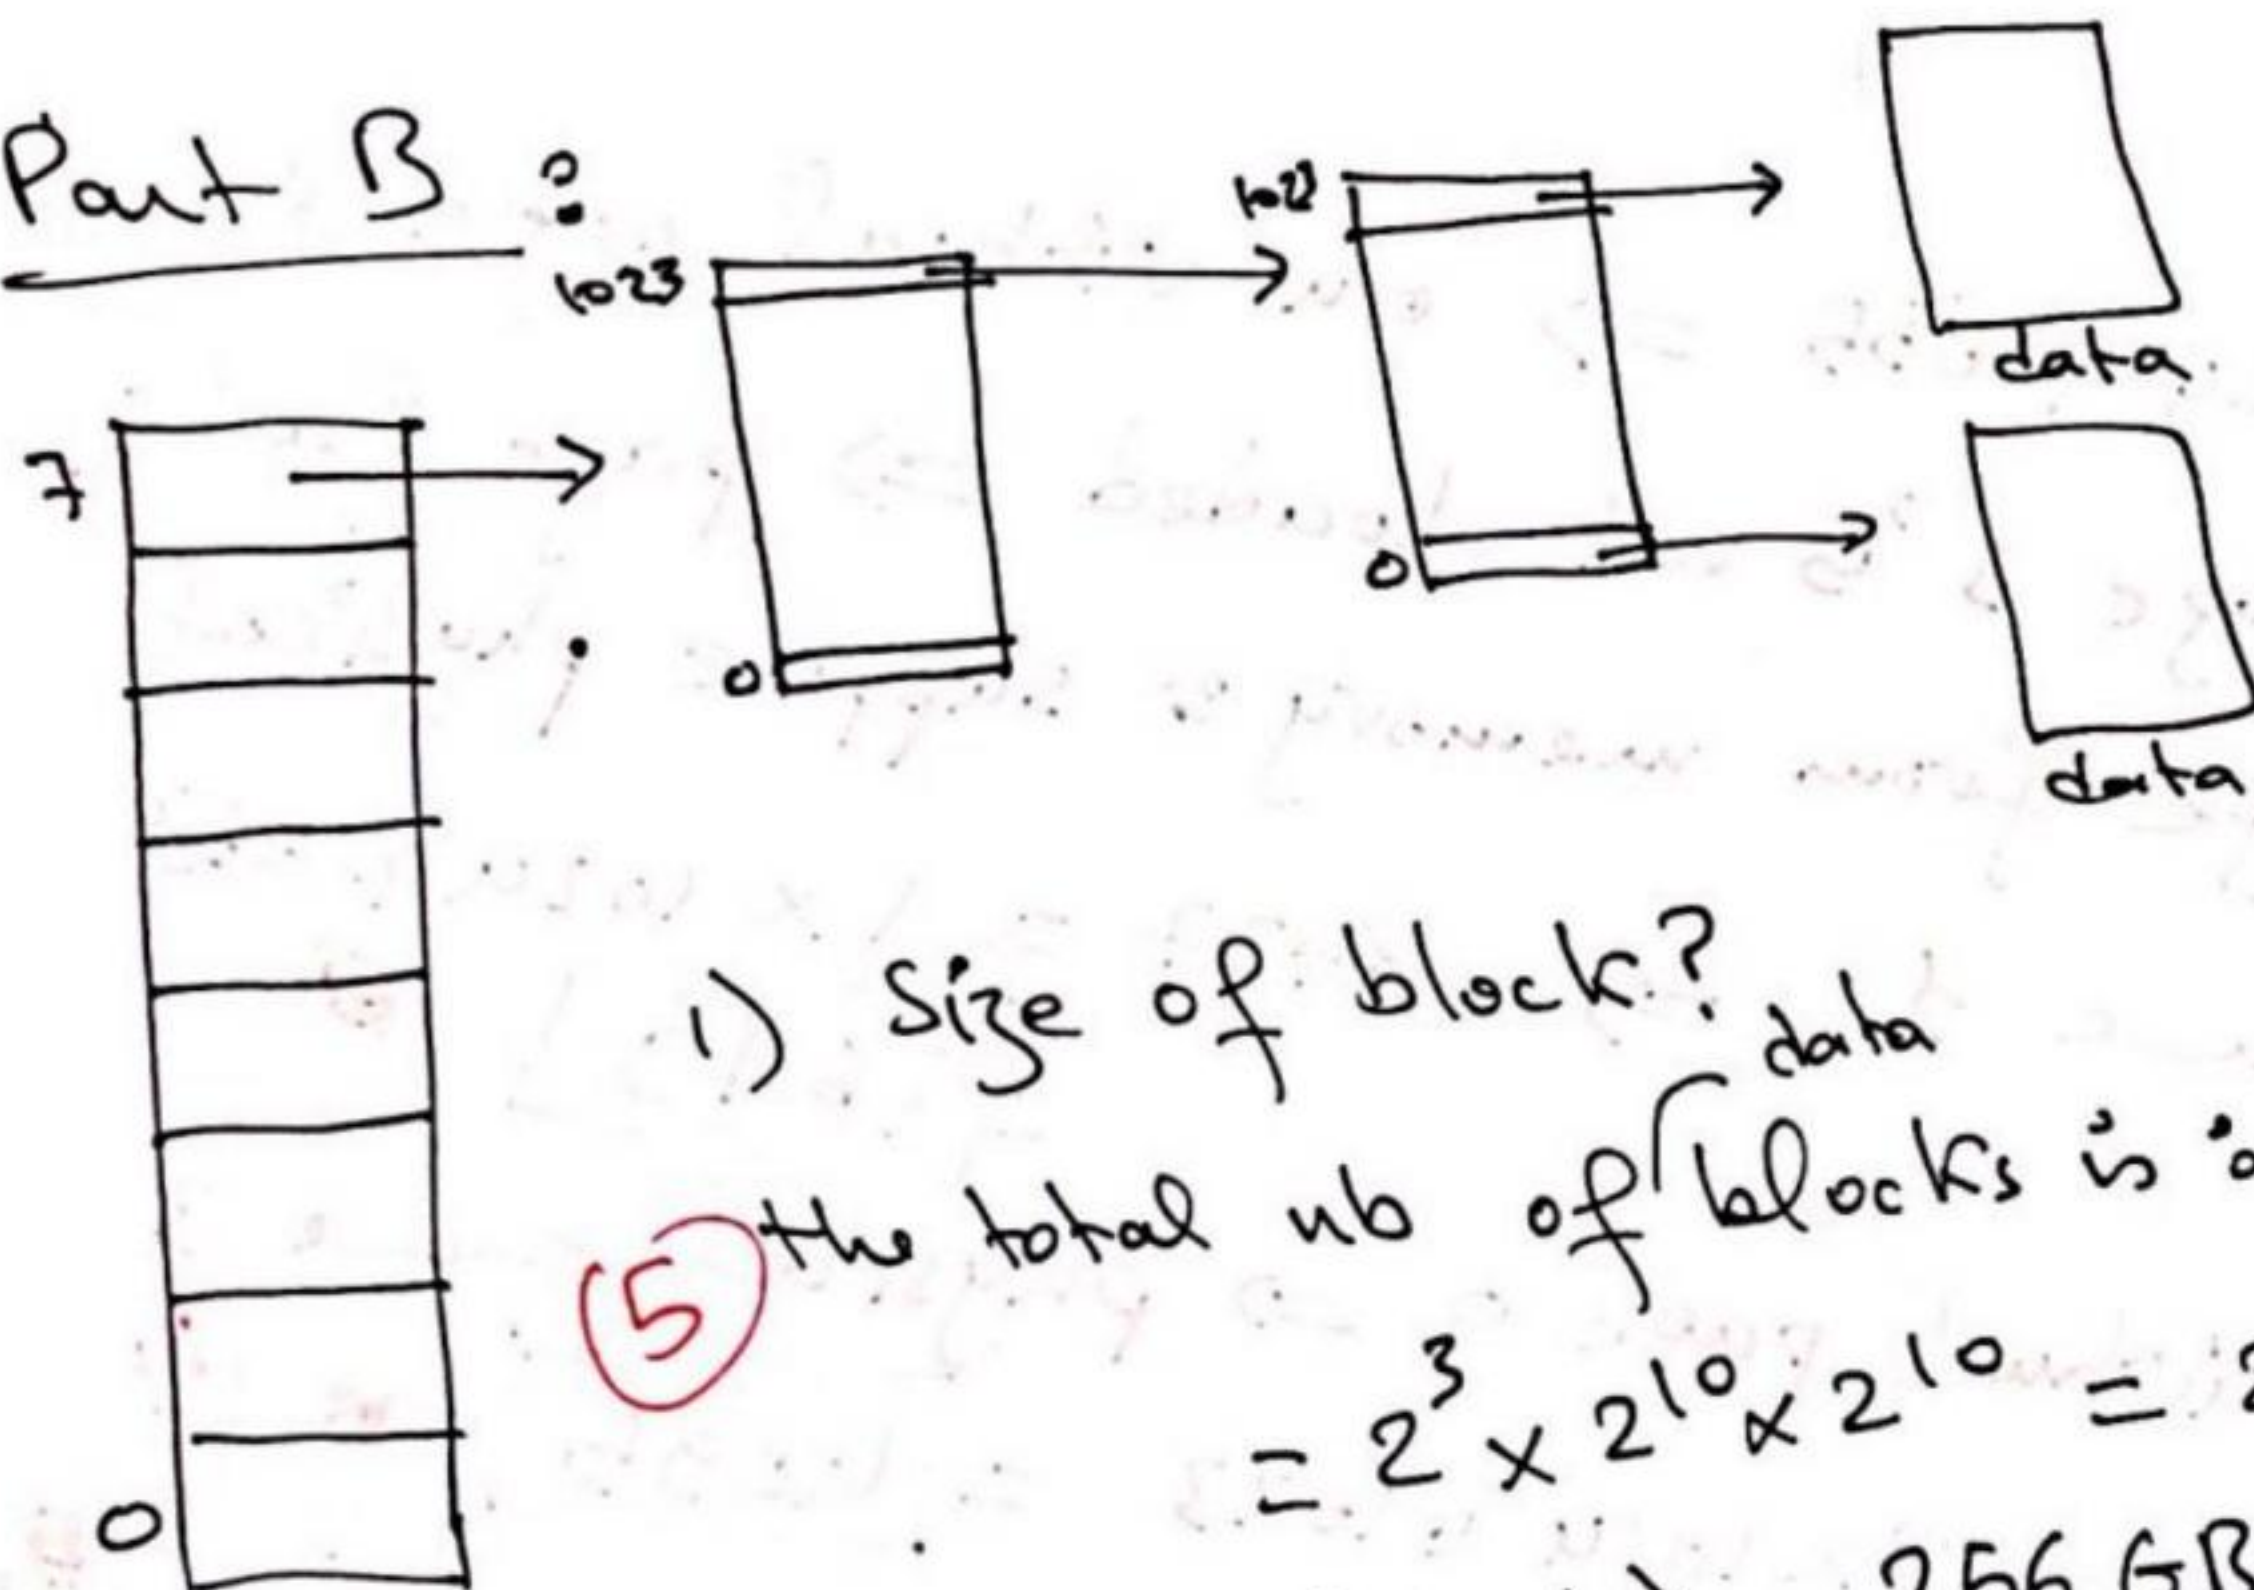 Part B :
1023
1023
data
7
0
0
data
1) Size of block?
data
the total nb of blocks is :
5
= 2^3 x 2^10 x 2^10 = 2
0
256 GB